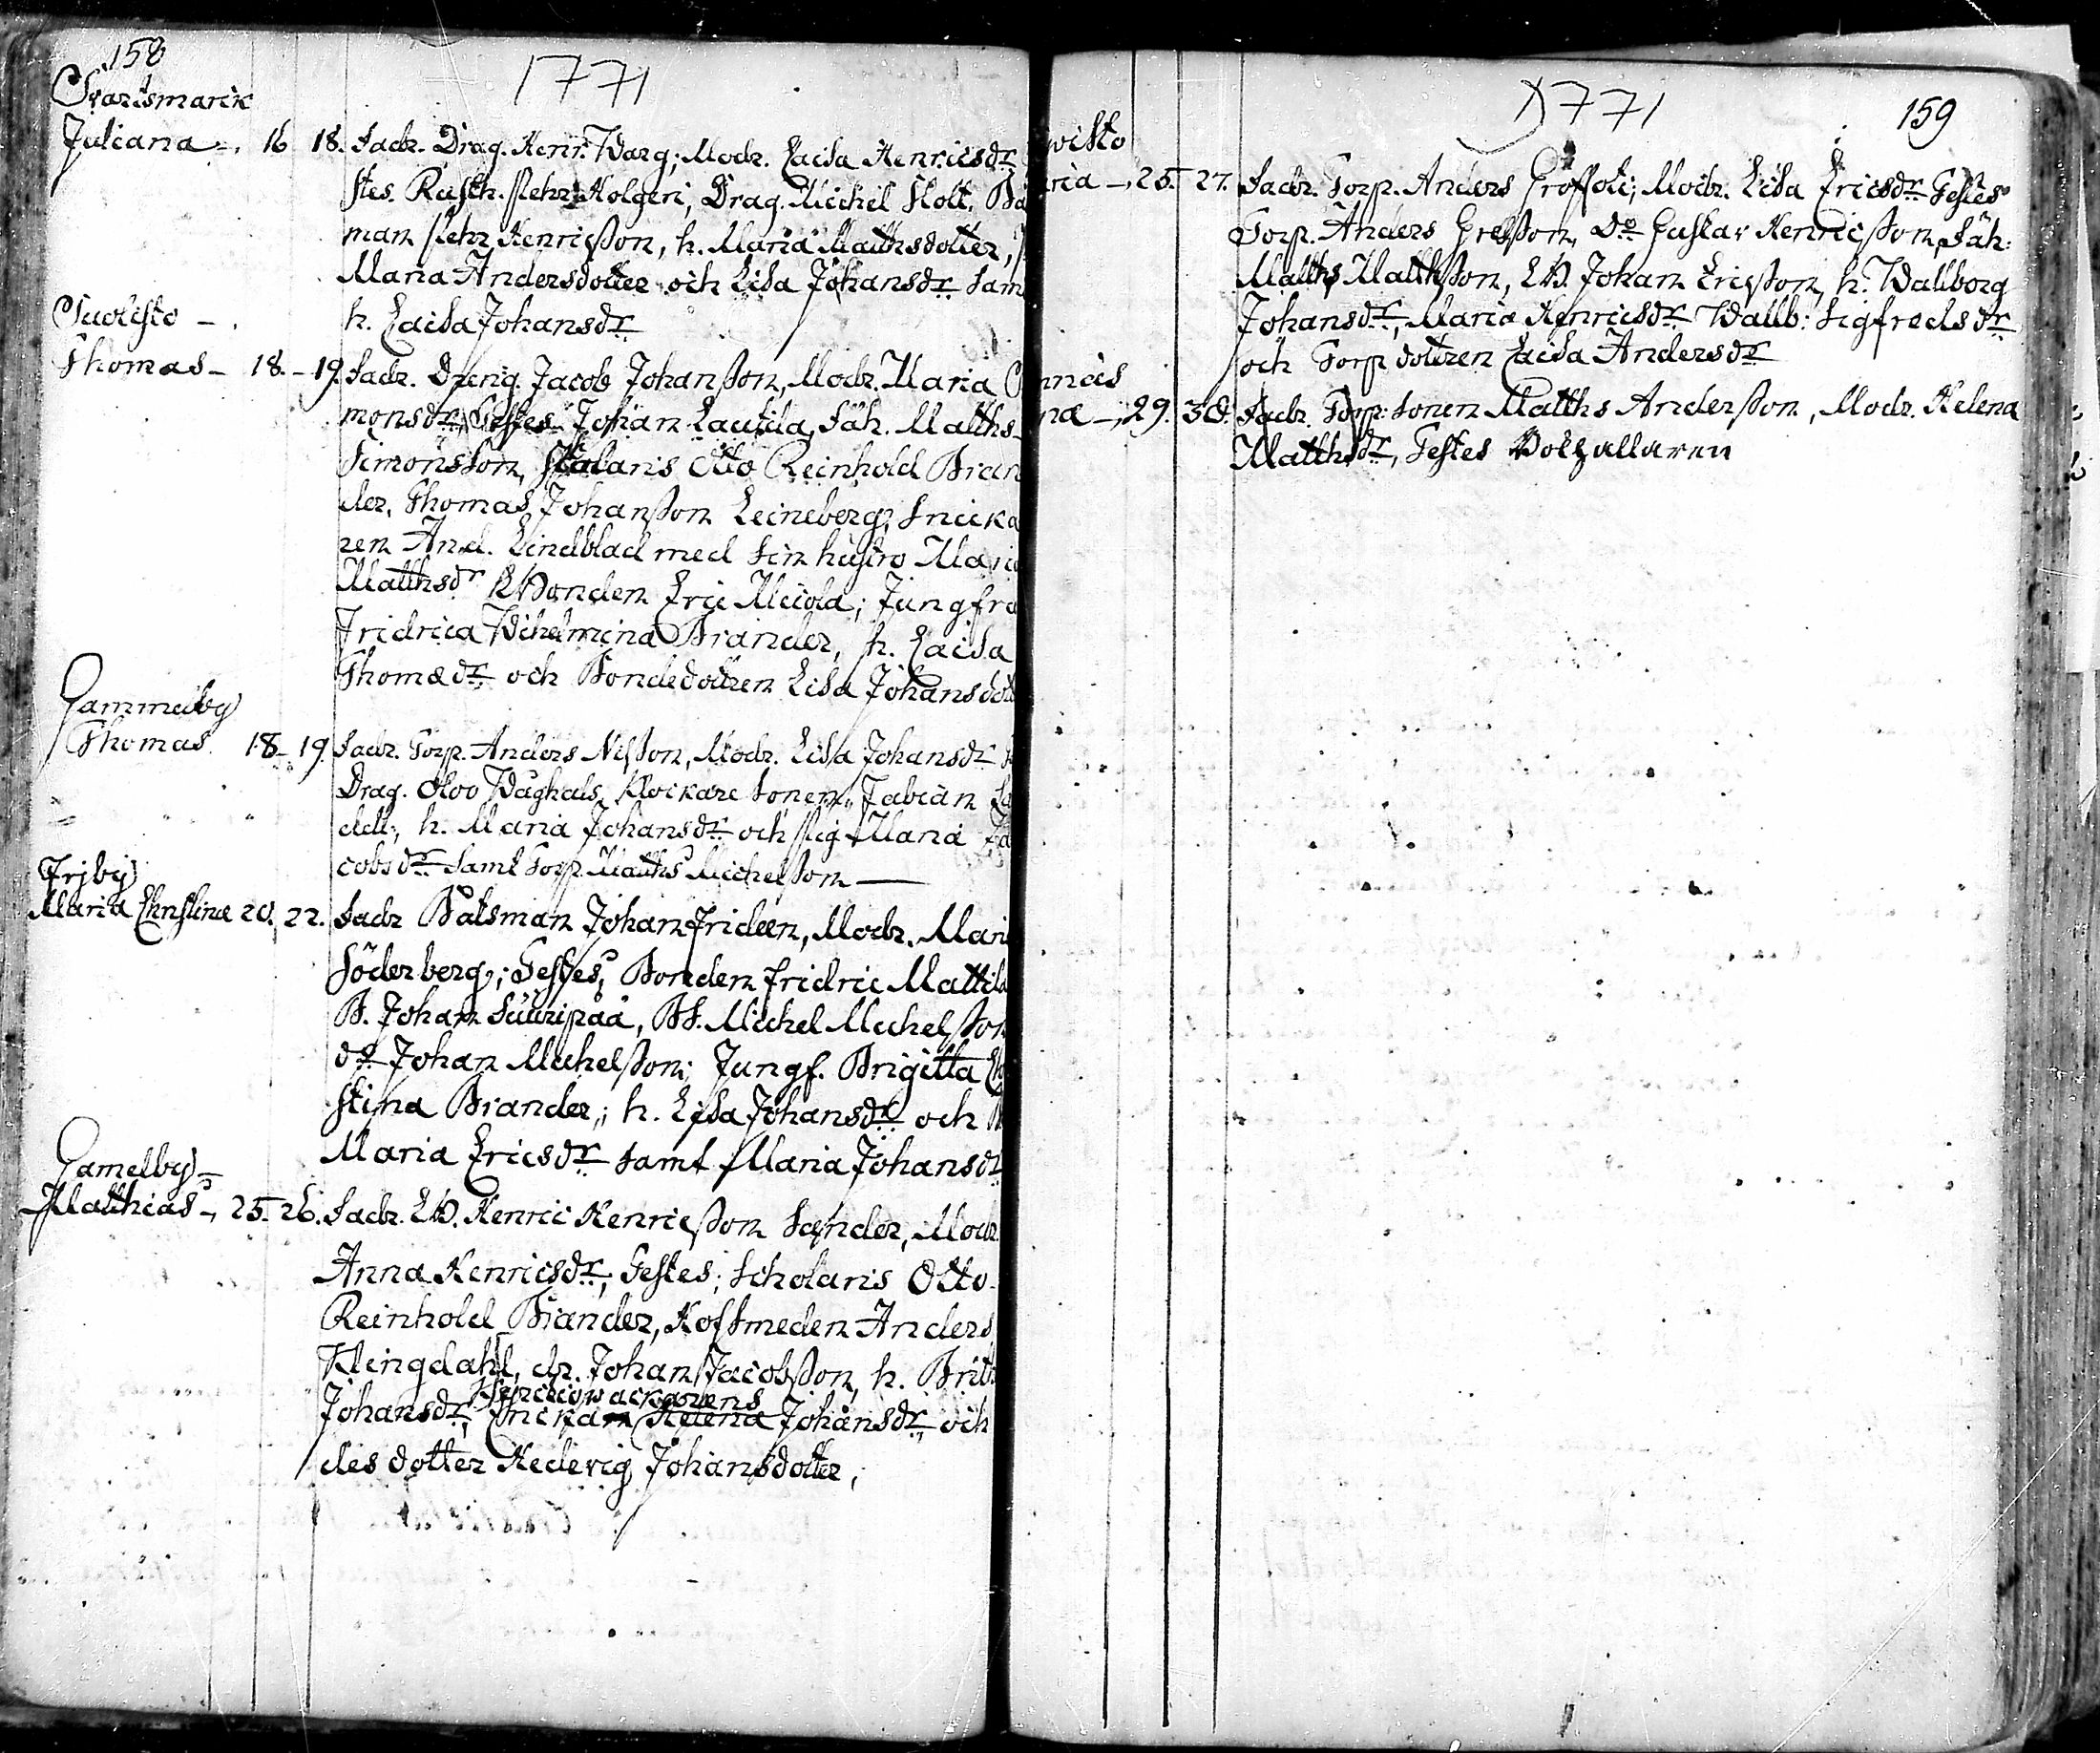 158
1771
Svartsmark
Juliana 16 18. Fadr. Drag. Henr. Warg; Modr. Caisa Henricsdr
stes. Rusth. Holgeri, Drag. Michel Stolt,
man Henricsson, h. Maria Matthsdotter,
Maria Andersdotter och Lisa Johansdr Sam
h. Caisa Johansdr
Thomas 18. 19. Fadr. Dreng. Jacob Johansson, Modr. Maria
monsdr, Testes Johan Lautila, Matths
Simonsson, Otto Reinhold Bran
der, Thomas Johansson Leineberg, Snicka
ren And. Lindblad med sin hustro Mari
Matthsdr Bonden Eric; Jungfr
Fridrica Wihelmina Brander, h. Caisa
Thomædr och Bondedottren Lisa Johansdott
Gammelby
Thomas 18 19. Fadr. Torp. Anders Nilsson, Modr. Lisa Johansdr
Drag. Olov Waghals, Klockare Sonen, Fabian
h. Maria Johansdr och Pig. Maria Ja
cobsdr Samt Torp. Matths Michelsson
Frjby
Maria Christina 20. 22. Fadr Båtsman Johan Frideen, Modr. Mari
Söderberg; Testes, Bonden Fridric Mattil
B. Johan Suuripää, BS. Michel Michelsson
do Johan Michelsson; Jungf. Brigitta Ch
stina Brander; h. Lisa Johansdr och
Maria Ericsdr samt Maria Johansdr
Gamelby
Matthias 25. 26. Fadr. Henric Henricsson Sander, Modr.
Anna Henricsdr, Testes; Scholaris Otto
Reinhold Brander, Hofsmeden Anders
Klingdahl, dr. Johan Jacobsson, h. Brit
Johansdr, Helena Johansdr och
des dotter Hedevig Johansdotter;
1771
159
wisto
ria 25. 27. Fadr. Torp. Anders; Modr. Lisa Ericsdr Testes
Torp. Anders Grelsson, Do Gustav Henricsson,
Matths Matthsson, Johan Ericsson, h. Wallborg
Johansdr, Maria Henricsdr Wallb: Sigfredsdr
och Torp dottren Caisa Andersdr
näs
na 29. 30. Fadr. Torp: sonen Matths Andersson, Modr. Helena
Matthsdr, Testes